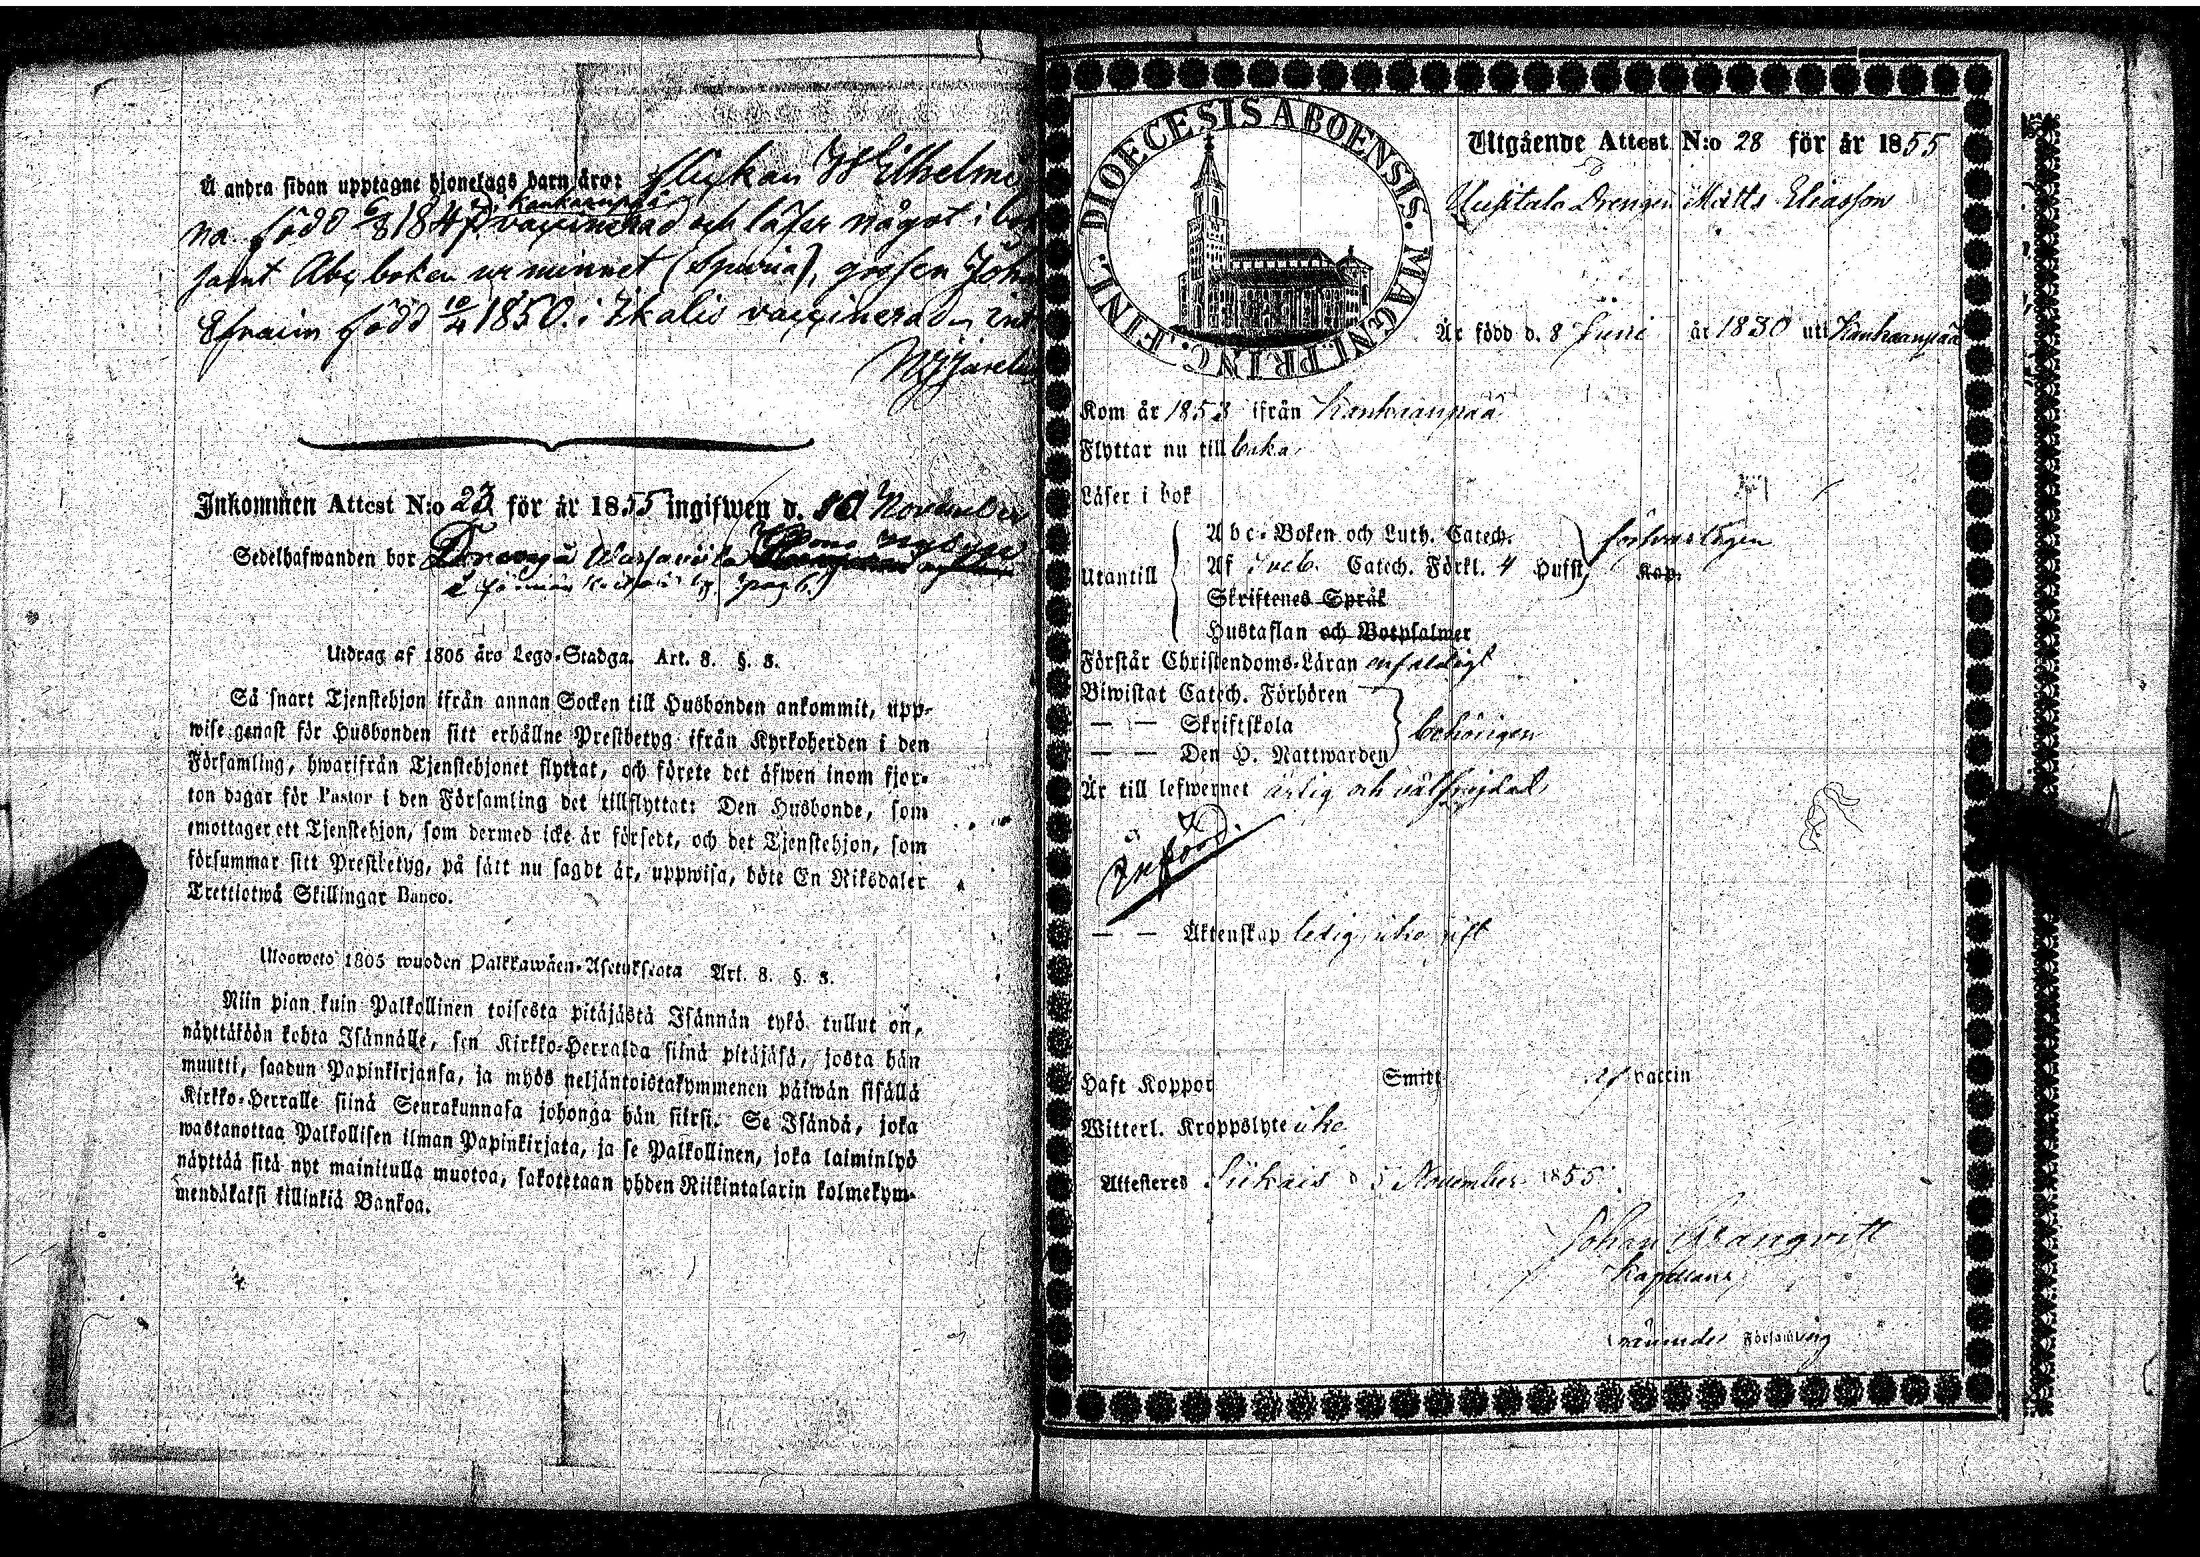 Å andra sidan upptagne hjonelags barn äro: flickan Wilhelmi
na född 6/8 184 vaccinerad och läser något i
Kankaanpää
samt Abc boken ur minnet (spuria), gossen Joh
Efraim född 10/4 1850 i Ikalis vaccinerad
Inkommen Attest N:o 23 för år 1855 ingifwen d. 10 November
Sedelhafwanden bor
Utdrag af 1805 åro Lego-Stadga. Art. 8. §. 3.
Så snart Tjenstehjon ifrån annan Socken till Husbonden ankommit, upp-
wise genast för Husbonden sitt erhållne Prestbetyg ifrån Kyrkoherden i den
Församling, hwarifrån Tjenstehjonet flyttat, och förete det äfwen inom fjor-
ton dagar för Pastor i den Församling det tillflyttat: Den Husbonde, som
emottager ett Tjenstehjon, som dermed icke är försedt, och det Tjenstehjon, som
försummar sitt Prestbetyg, på sätt nu sagdt är, uppwisa, böte En Riksdaler
Trettiotwå Skillingar Banco.
Ulosweto 1805 wuoden Palkkawäen-Asetuksesta Art. 8. §. 3.
Niin pian kuin Palkollinen toisesta pitäjästä Isännän tykö tullut on,
näyttäköön kohta Isännälle, sen Kirkko-Herralda siinä pitäjäsä, josta hän
muutti, saadun Papinkirjansa, ja myös neljäntoistakymmenen päiwän sisällä
Kirkko-Herralle siinä Seurakunnasa johonga hän siirsi. Se Isändä, joka
wastanottaa Palkollisen ilman Papinkirjata, ja se Palkollinen, joka laiminlyö
näyttää sitä nyt mainitulla muotoa, sakotetaan yhden Riikintalarin kolmekym-
mendäkaksi killinkiä Bankoa.
DIOECESIS ABOENSIS. MAGNI PRINC. FINL.
Utgående Attest N:o 28 för år 1855
Drengen Matts Eliasson
Är född d. 8 Juni år 1830 uti Kankaanpää
Kom år 1853 ifrån Kankaanpää
Flyttar nu tillbaka
Läser i bok
Abc-Boken och Luth. Catech.
försvarligen
Utantill
Af Sveb. Catech. Förkl. 4 Hufst. Kap.
Skriftenes Språk
Hustaflan och Botpsalmer
Förstår Christendoms-Läran enfaldigt
Biwistat Catech. Förhören
— — Skriftskola
behörigen
— — Den H. Nattwarden
Är till lefwernet ärlig och välfrejdad,
Införd.
— — Äktenskap ledig, icke gift
Haft Koppor Smitt af vaccin
Witterl. Kroppslyte icke
Attesteras Siikais d 5 November 1855
Johan
Kapellan
Församling